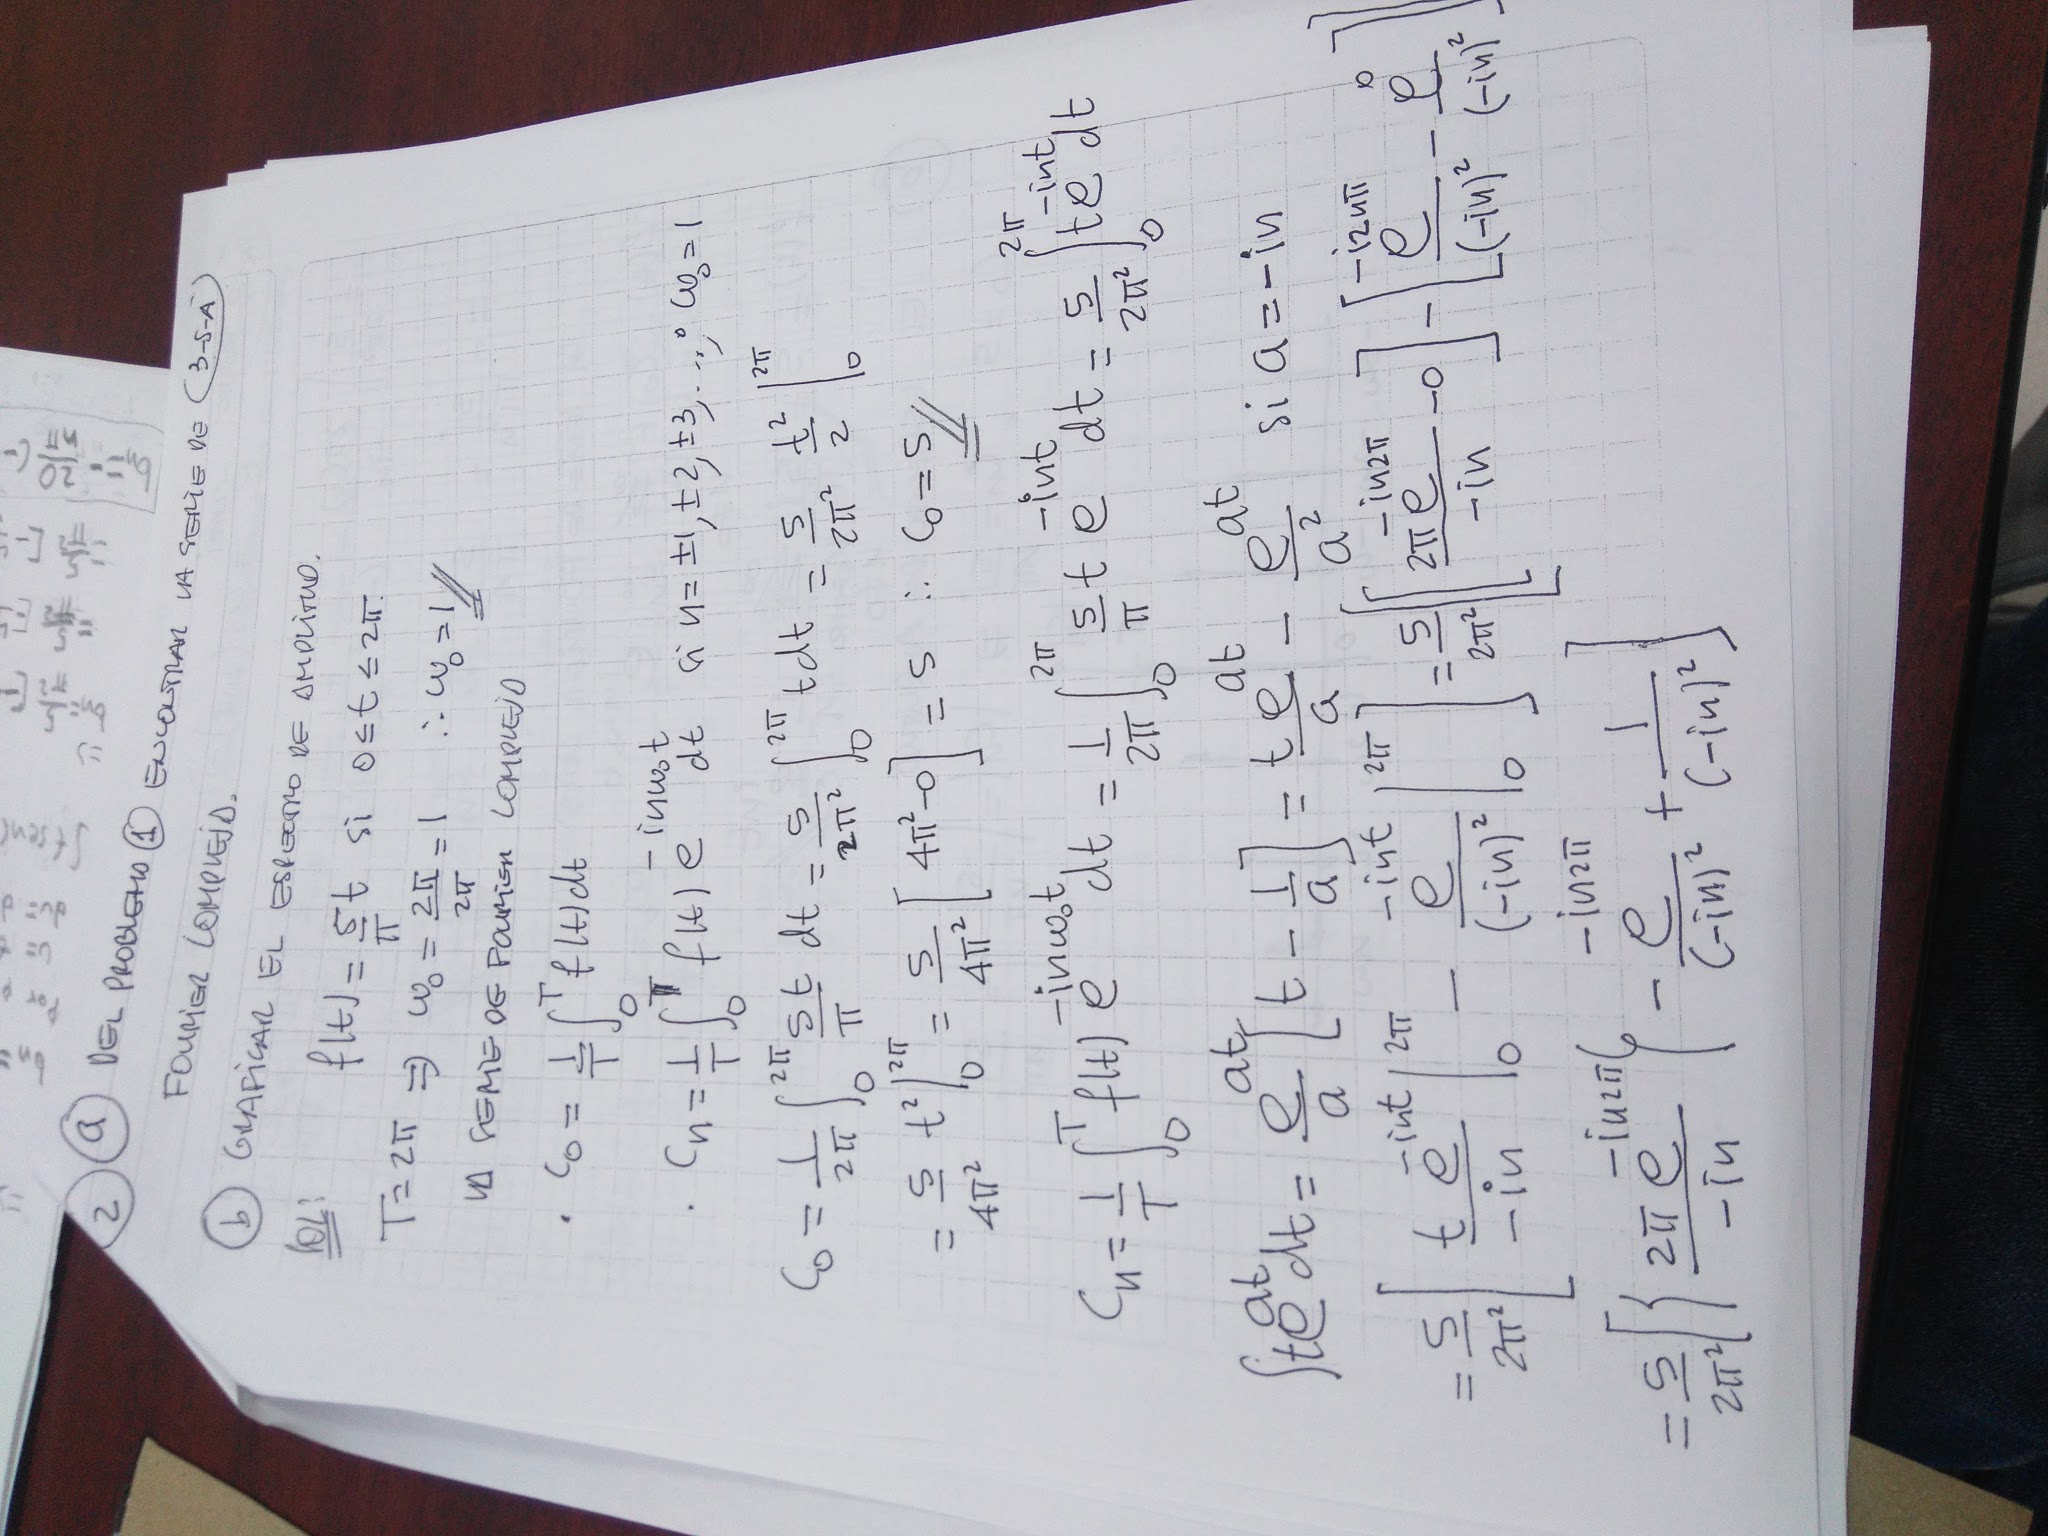 bn=
u=
du=
∫t sen(
=)
bn=5/π² [-
=5/π² [-
=5/π² [-
bn=-20/nπ (-
2 a DEL PROBLEMA 1 ENCONTRAR LA SERIE DE (3-5-A)
FOURIER COMPLEJA.
b GRAFICAR EL ESPECTRO DE AMPLITUD.
SOL: f(t) = 5/π t si 0 ≤ t ≤ 2π.
T = 2π ⇒ ω₀ = 2π/2π = 1 ∴ ω₀ = 1//
LA SERIE DE FOURIER COMPLEJA
· C₀ = 1/T ∫₀^T f(t) dt
· Cn = 1/T ∫₀^T f(t) e^(-inω₀t) dt si n = ±1, ±2, ±3, ...; ω₀ = 1
C₀ = 1/2π ∫₀^2π 5t/π dt = 5/2π² ∫₀^2π t dt = 5/2π² t²/2 |₀^2π
= 5/4π² t² |₀^2π = 5/4π² [4π² - 0] = 5 ∴ C₀ = 5//
Cn = 1/T ∫₀^T f(t) e^(-inω₀t) dt = 1/2π ∫₀^2π 5/π t e^(-int) dt = 5/2π² ∫₀^2π t e^(-int) dt
∫te^(at) dt = e^(at)/a [t - 1/a] = te^(at)/a - e^(at)/a² si a = -in
= 5/2π² [t e^(-int)/-in |₀^2π - e^(-int)/(-in)² |₀^2π] = 5/2π² [[2π e^(-in2π)/-in - 0] - [e^(-i2nπ)/(-in)² - e^0/(-in)²]]
= 5/2π² [{2π e^(-in2π)/-in} - e^(-in2π)/(-in)² + 1/(-in)²]